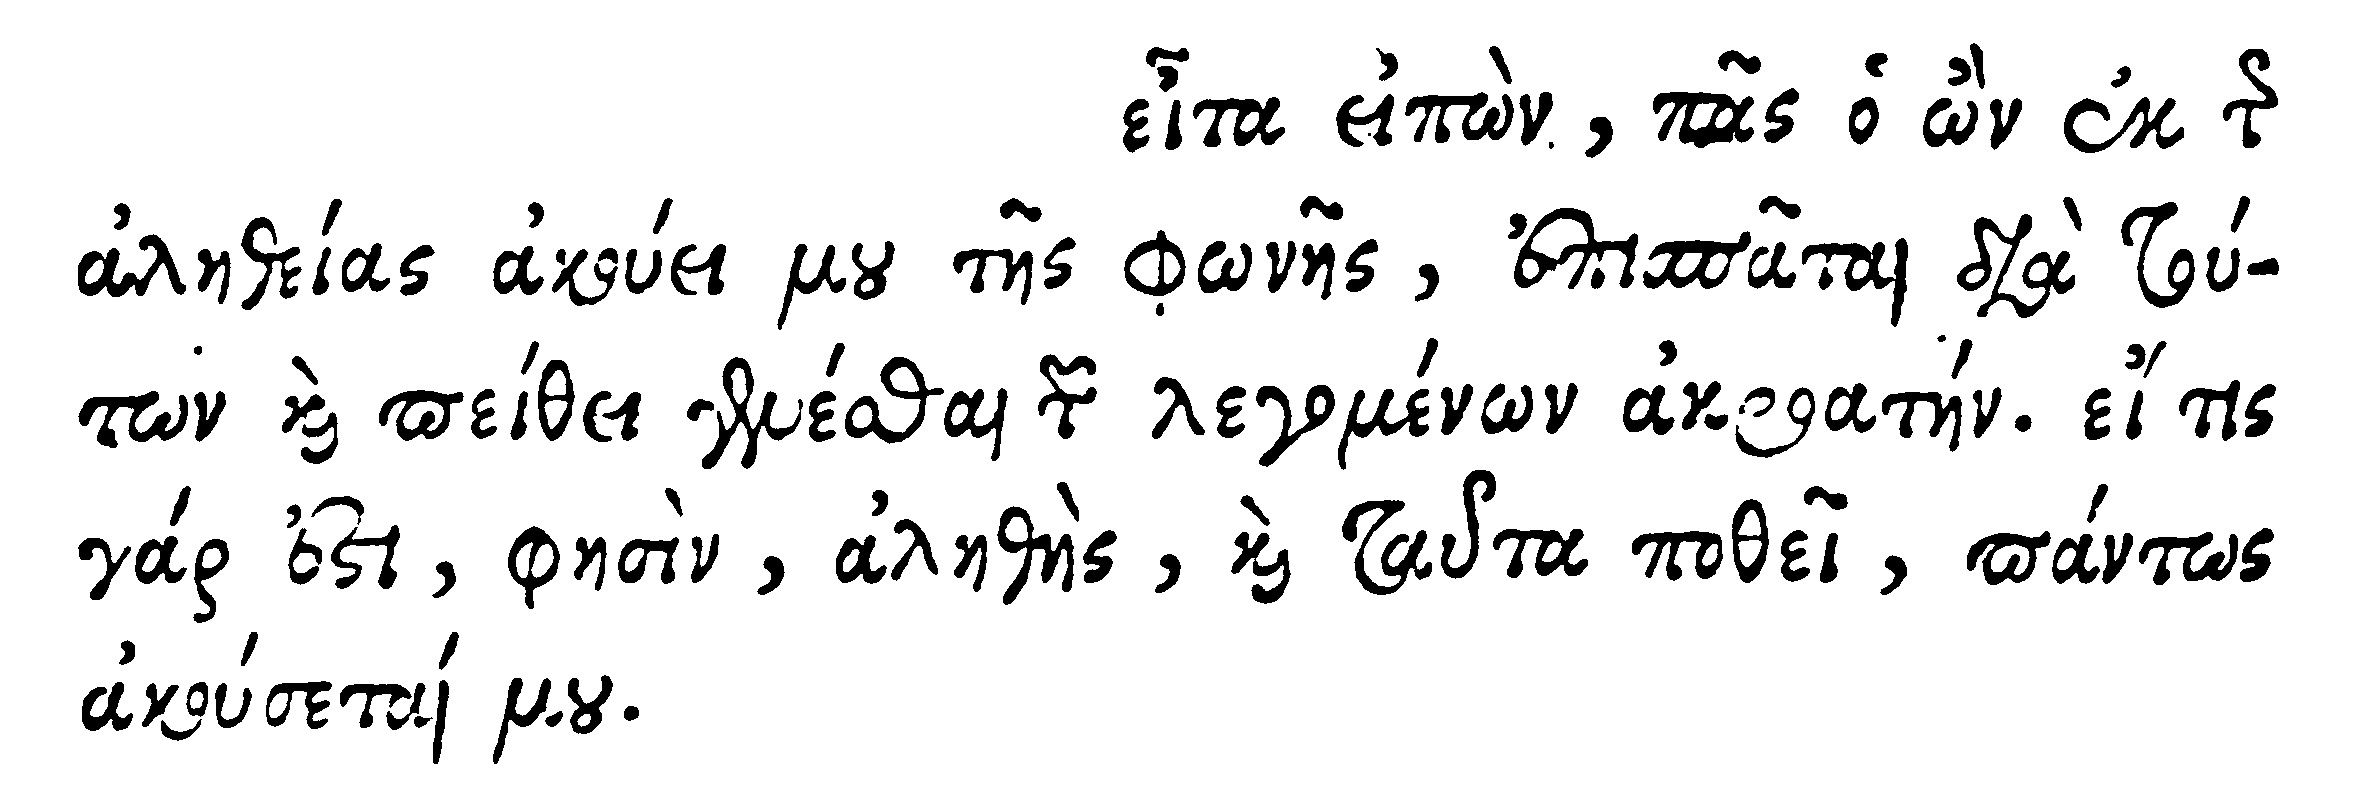 εἶτα εἰπὼν, πᾶς ὁ ὢν ἐκ τῆς
ἀληθείας ἀκούει μου τῆς φωνῆς, ἐπισπᾶται διὰ τού-
των καὶ πείθει γενέσθαι τῶν λεγομένων ἀκροατήν. εἴ τις
γάρ ἐστι, φησὶν, ἀληθὴς, καὶ ταῦτα ποθεῖ, πάντως
ἀκούσεταί μου.